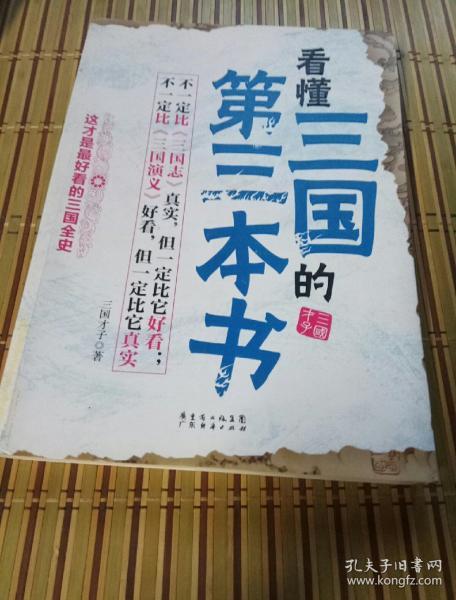 看懂三国的
第三本书
三國才子
不一定比《三国志》真实，但一定比它好看；
不一定比《三国演义》好看，但一定比它真实
这才是最好看的三国全史
三国才子◎著
孔夫子旧书网
www.kongfz.com